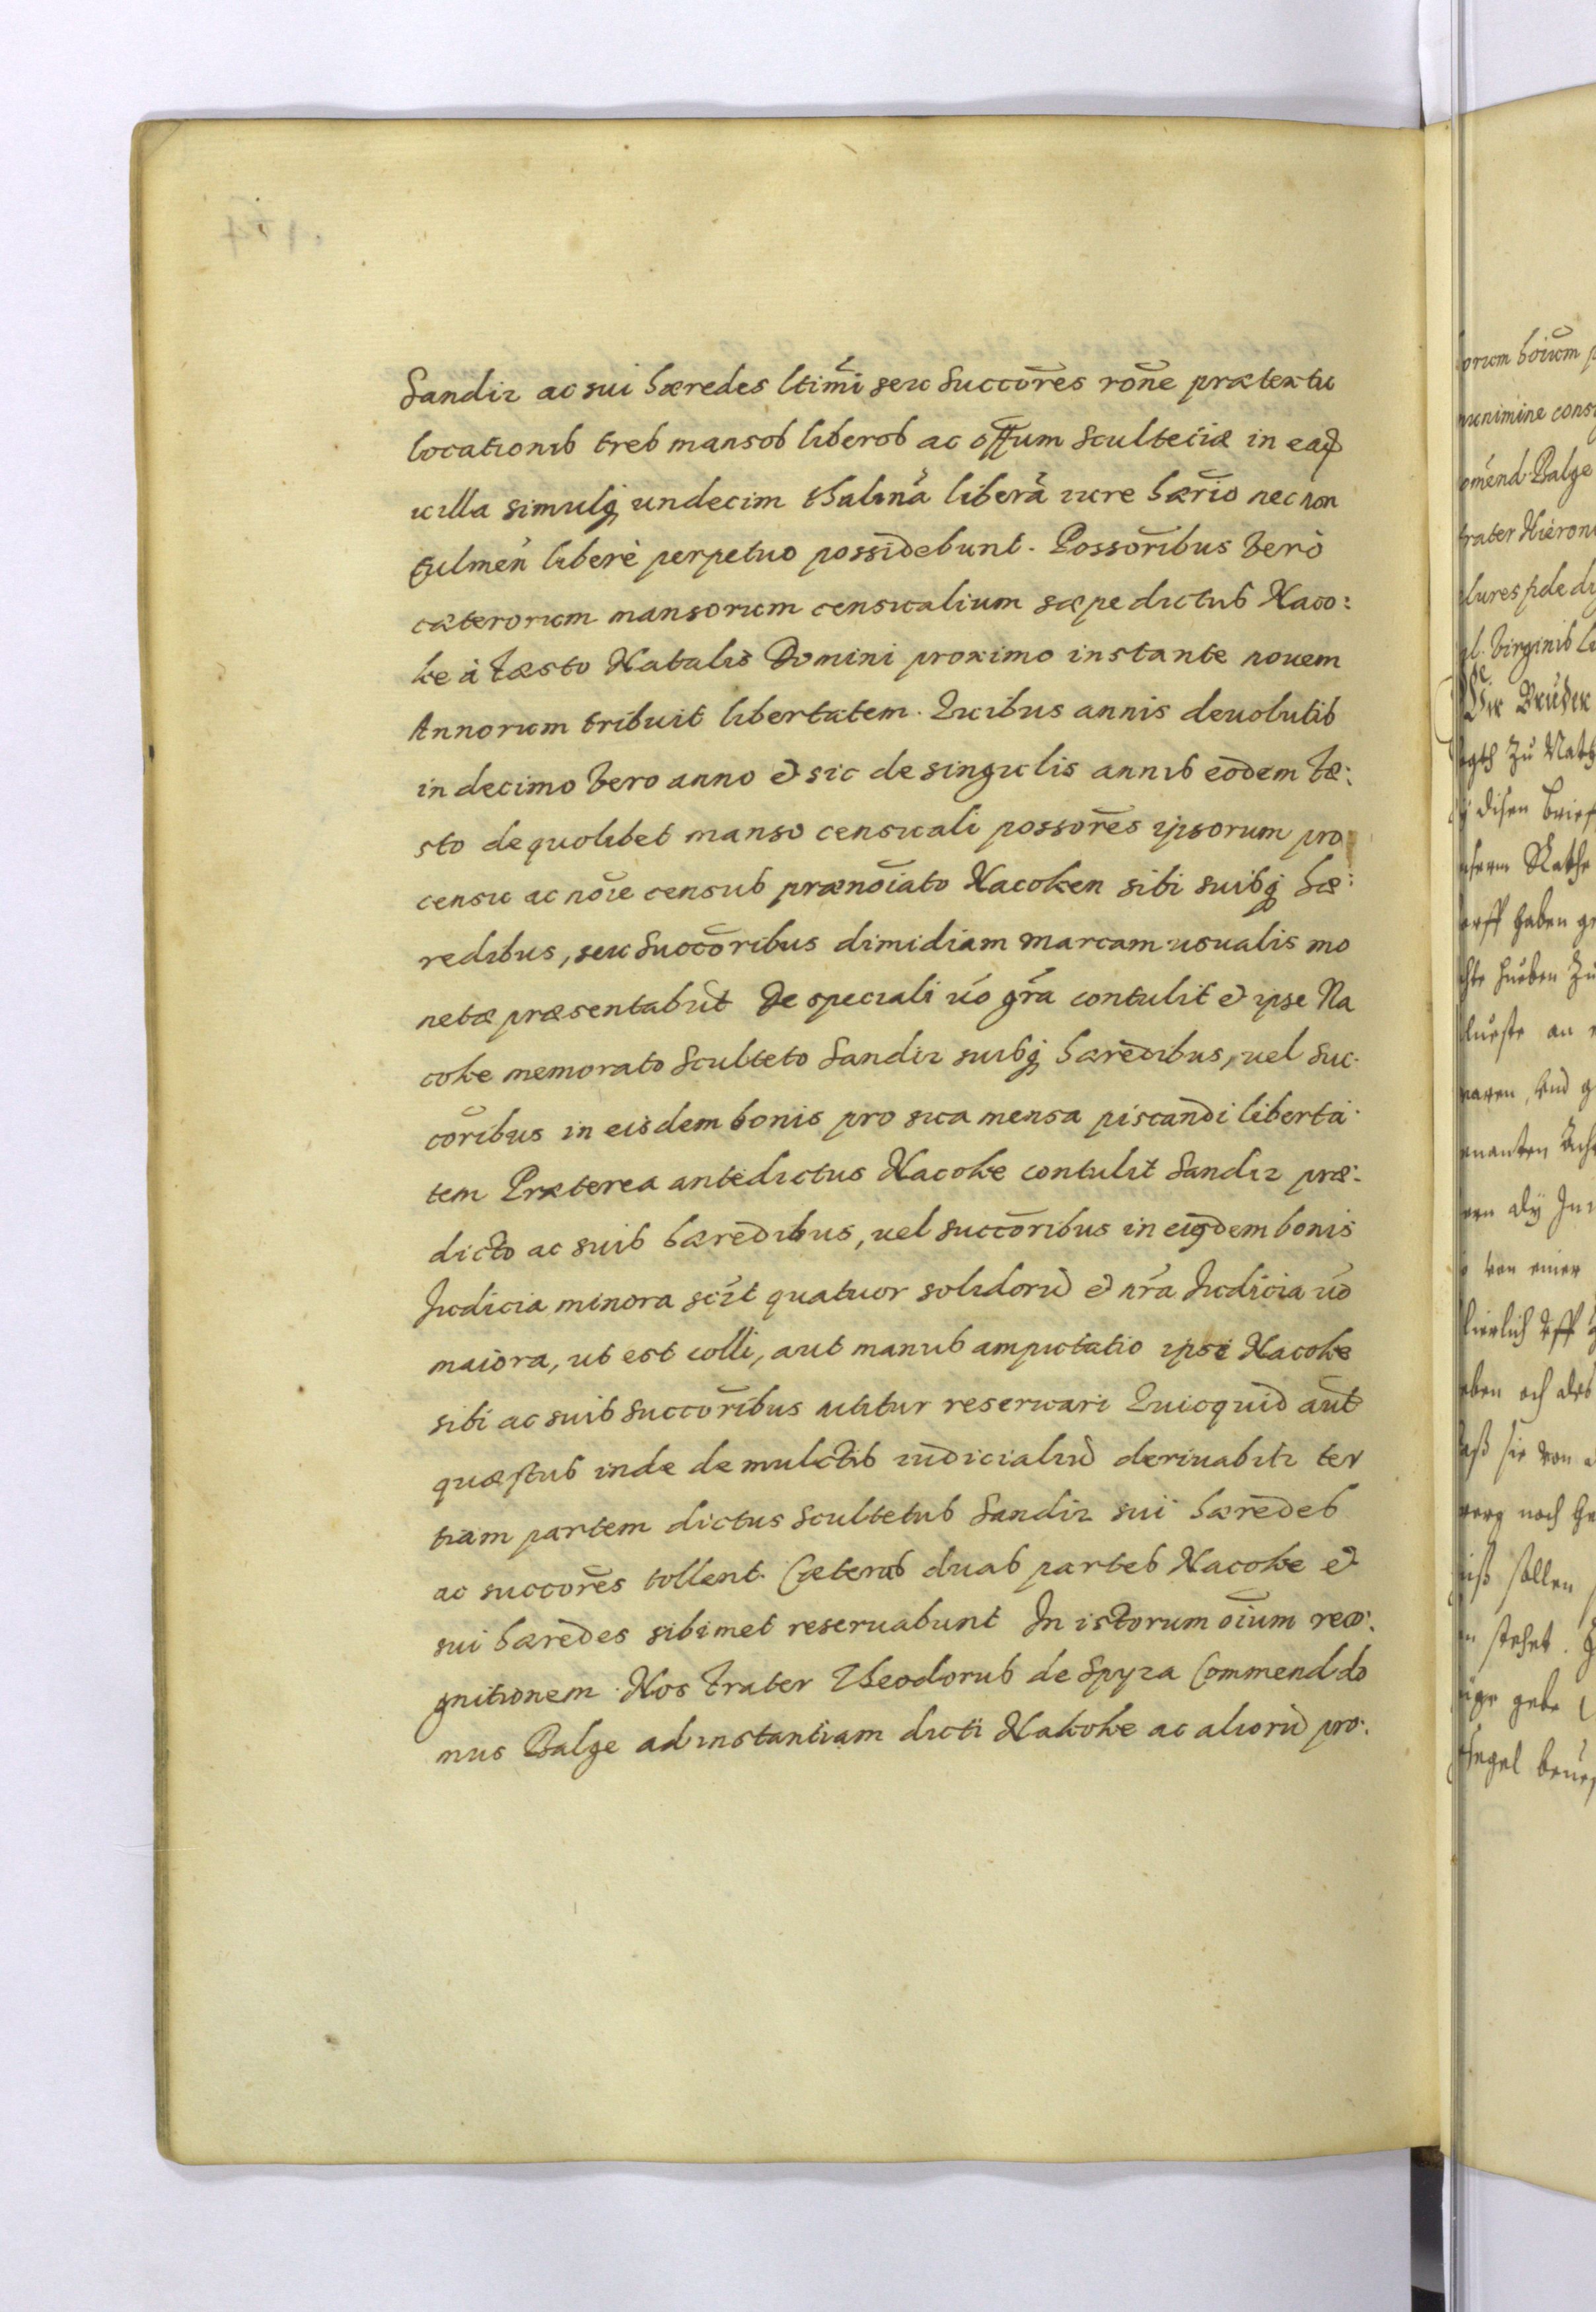 Sandir ac sui hæredes ltim̃i seu Succor̃es rõne prætextu
locationis tres mansos liberos ac offum Scultetiæ in ead̃
uilla simulq̃ undecim thalenã liberã iure hær̃io nec non
liberè perpetuo possidebunt. Possor̃ibus verò
cæterorum mansorum censualium sæpe dictus Naco:
ke à fæsto Natalis Domini proximo instante nouem
Annorum tribuit libertatem. Quibus annis deuolutis
in decimo vero anno et sic de singulis annis eodem fæ:
sto de quolibet manso censuali possor̃es ipsorum pro
censu ac nõie census prænõiato Nacoken sibi suisq̃ hæ:
redibus, seu Succõribus dimidiam marcam usualis mo
netæ præsentabũt De speciali ũo gr̃a contulit et ipse Na
coke memorato Sculteto Sandir suisq̃ hæredibus, uel Suc:
cõribus in eisdem bonis pro sua mensa piscandi liberta:
tem Præterea antedictus Nacoke contulit Sandir præ:
dicto ac suis hæredibus, uel succõribus in eisdem bonis
Iudicia minora scil̃t quatuor solidorũ et nr̃a Iudicia ũo
maiora, ut est colli, aut manus amputatio ipse Nacoke
sibi ac suis Succõribus reseruari Quicquid aũt
quæstus inde de mulctis iudicialiũ deriuabitr ter
tiam partem dictus Scultetus Sandir sui hæredes
ac succor̃es tollent. Cæteras duas partes Nacoke et
sui hæredes sibimet reseruabunt In istorum oĩum reco:
gnitionem. Nos frater Theodorus de Spyra Commend: do
mus Balge ad instantiam dicti Nakoke ac aliorũ pro:
munimine
õmend: Balge
frater
plures
Virginis
Wir Bruder
zu
disen brieff
Rathe
haben
an
vnd
von einer
sie von
noch
sollen
stehet.
gebe